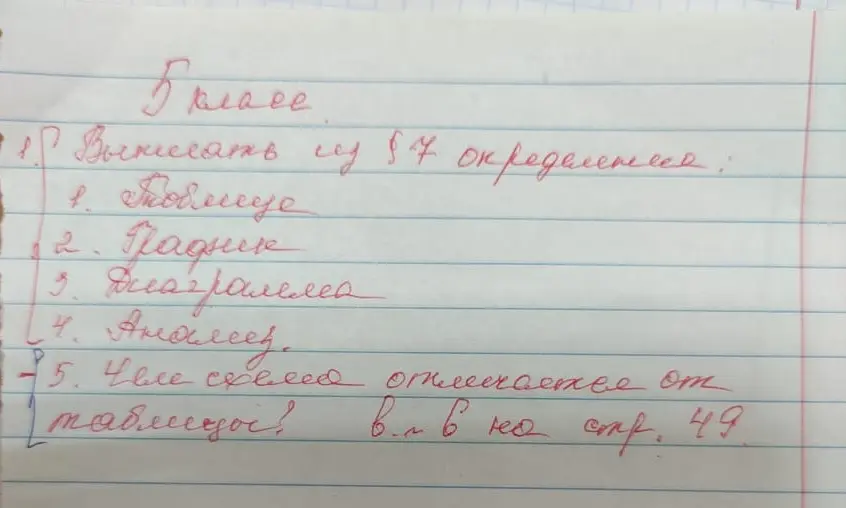 5 класс
1. Выписать из § 7 определения:
1. Таблица
2. График
3. Диаграмма
4. Анализ.
5. Чем схема отличается от
таблицы? в. 6 на стр. 49.